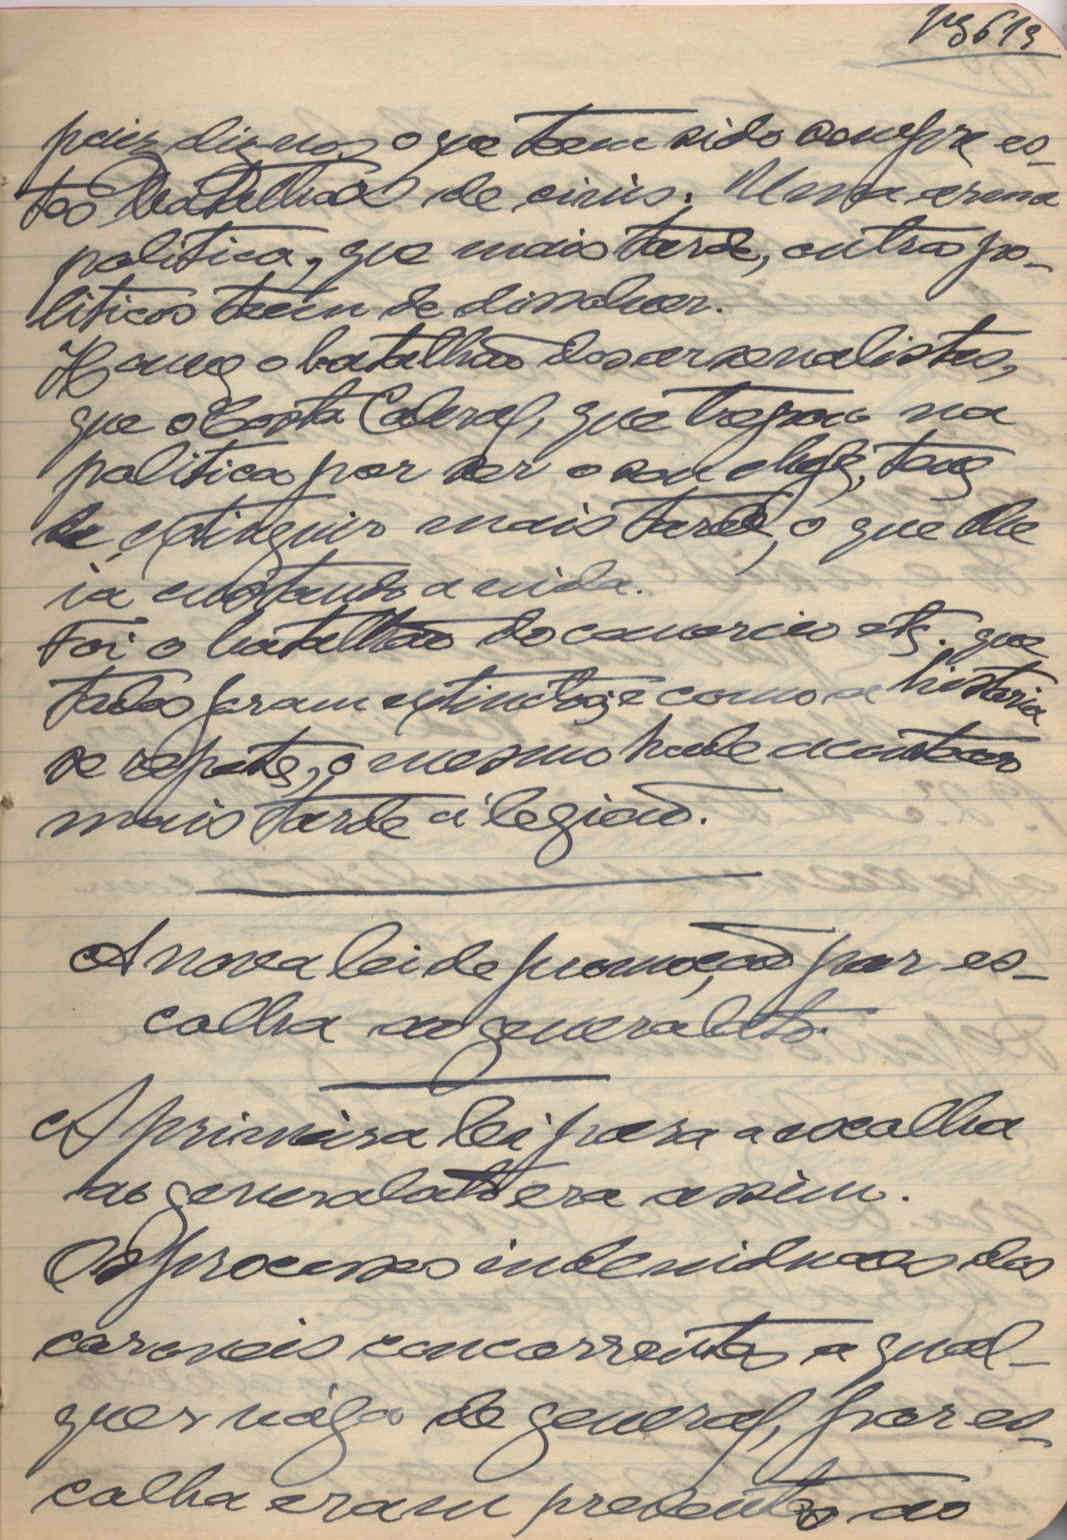 pg 613
paiz dignos, o que teem sido sempre es-
tes batalhões de civis. Uma arma
politica, que mais tarde, outros po-
liticos teem de dissolver.
Houve o batalhão dos arsenalistas,
que o Costa Cabral, que trepou na
politica por ser o seu chefe, teve
de extinguir mais tarde, o que lhe
ia custando a vida.
Foi o batalhão do comercio etc. que
todos foram extintos, e como a historia
se repete, o mesmo hade acontecer
mais tarde á legião.
A nova lei de promoção por es-
colha ao generalato.
A primeira lei para a escolha
ao generalato era assim.
Os processos individuaes dos
coroneis concorrentes a qual-
quer vága de general, por es-
colha eram presentes ao